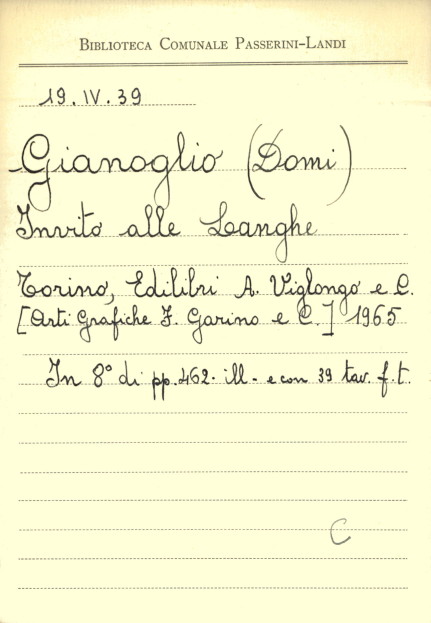 BIBLIOTECA COMUNALE PASSERINI-LANDI
19.IV.39
Gianoglio (Domi)
Invito alle Langhe
Torino, Edilibri A. Viglongo e C.
[Arti Grafiche F. Garino e C.] 1965
In 8° di pp. 462. ill. e con 39 tav. f.t.
C